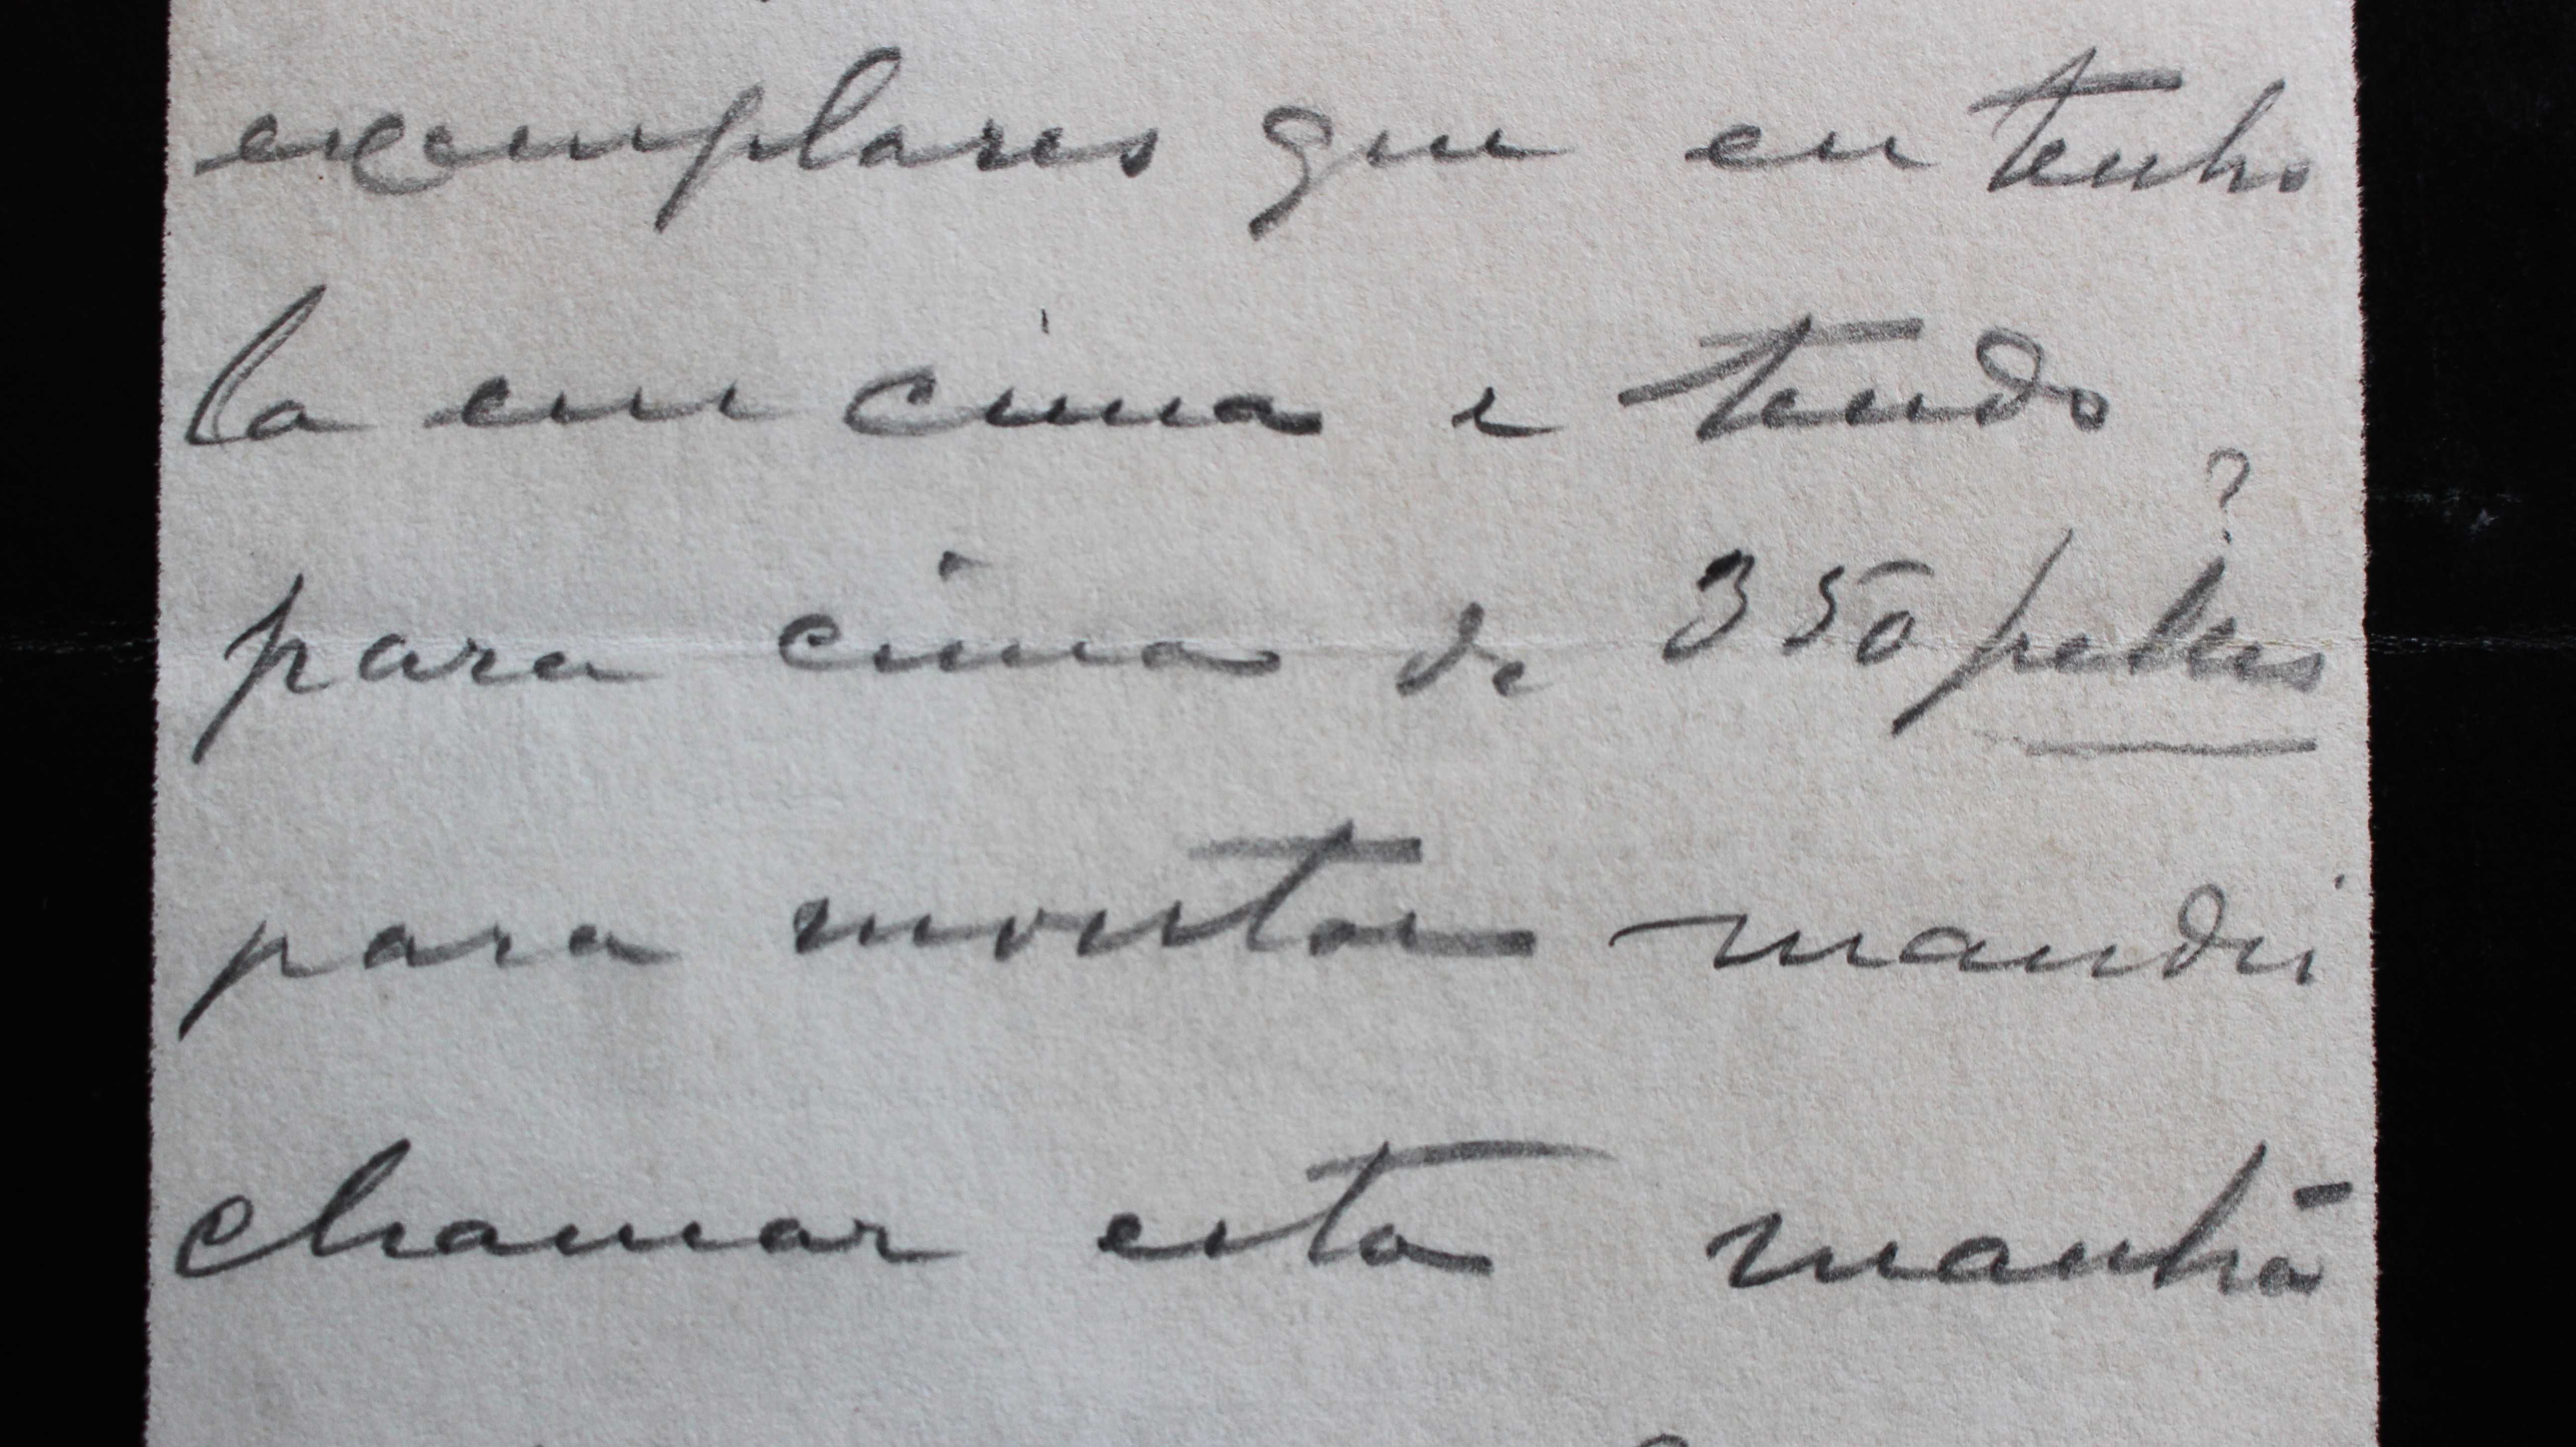 exemplares que eu tenho
la em cima e tendo
?
para cima de 350 pelles
para montar mandei
chamar esta manhã